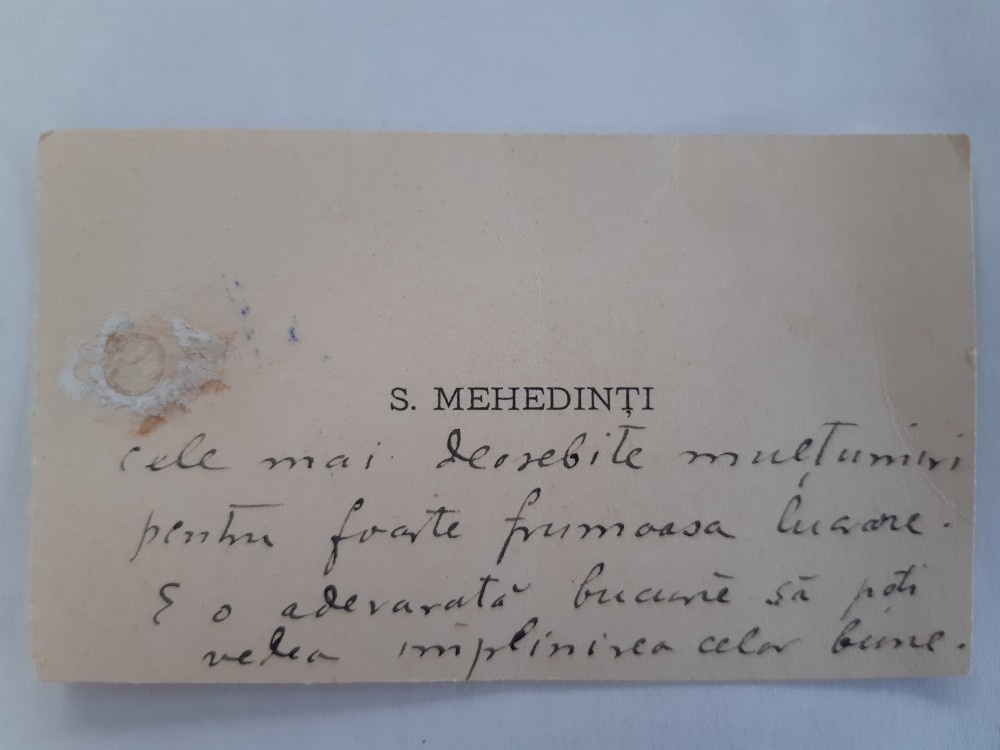 S. MEHEDINȚI
cele mai deosebite mulțumiri
pentru foarte frumoasa lucrare.
E o adevarată bucurie să poti
vedea împlinirea celor bune.